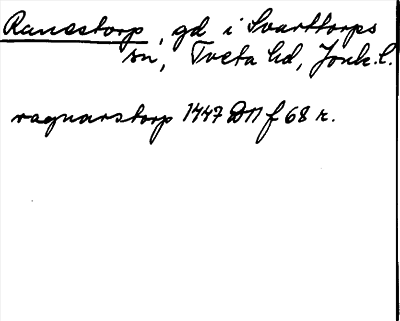 Ransstorp, gd i Svarttorps
sn, Tveta hd, Jönk. l.
ragnarstorp 1447 DN f 68 r.